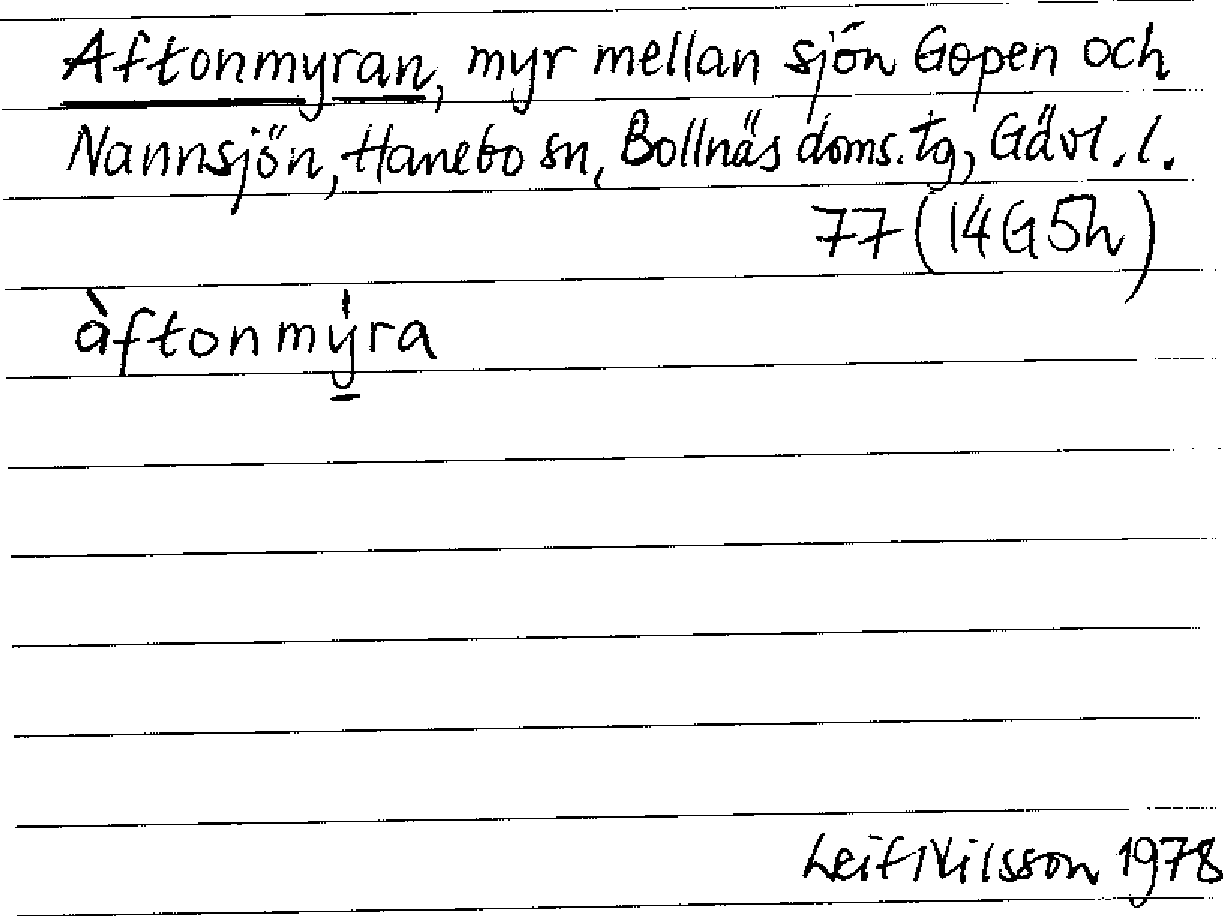 Aftonmyran, myr mellan sjön Gopen och
Nannsjön, Hanebo sn, Bollnäs doms.tg, Gävl.l.
77 (14G5h)
àftonmý̱ra
Leif Nilsson 1978